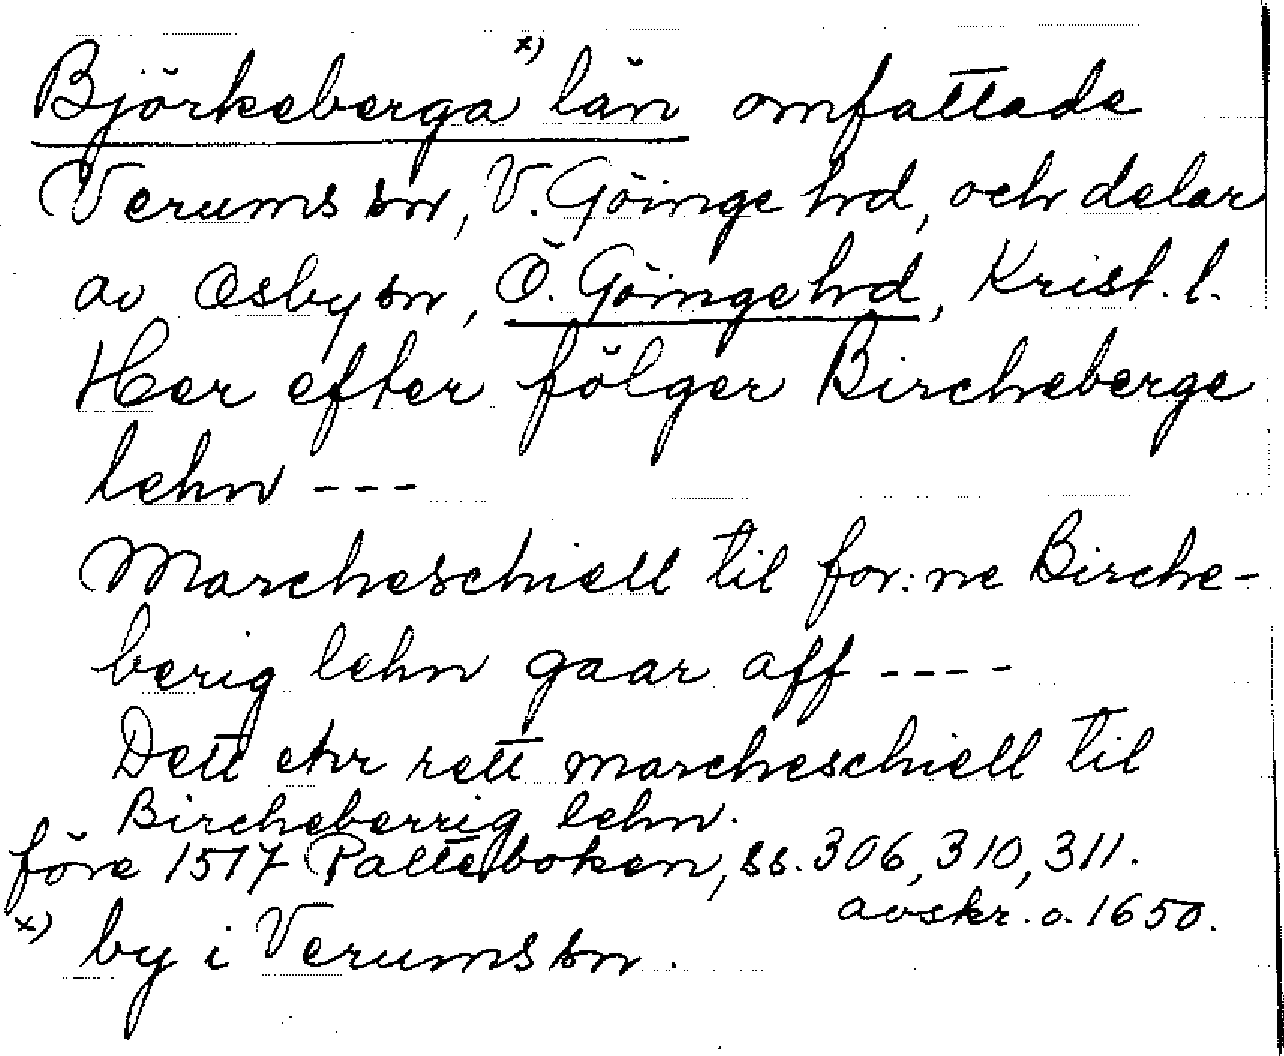 Björkeberga x) län omfattade
Verums sn, V. Göinge hrd, och delar
av Osby sn, Ö. Göinge hrd, Krist. l.
Her efter fölger Bircheberge
lehn ---
Marcheschiell til for:ne Birche-
berig lehn gaar aff ----
Dett ehr rett marcheschiell til
Bircheberrig lehn.
före 1517 Palteboken, ss. 306, 310, 311.
avskr. o. 1650.
x) by i Verums sn.